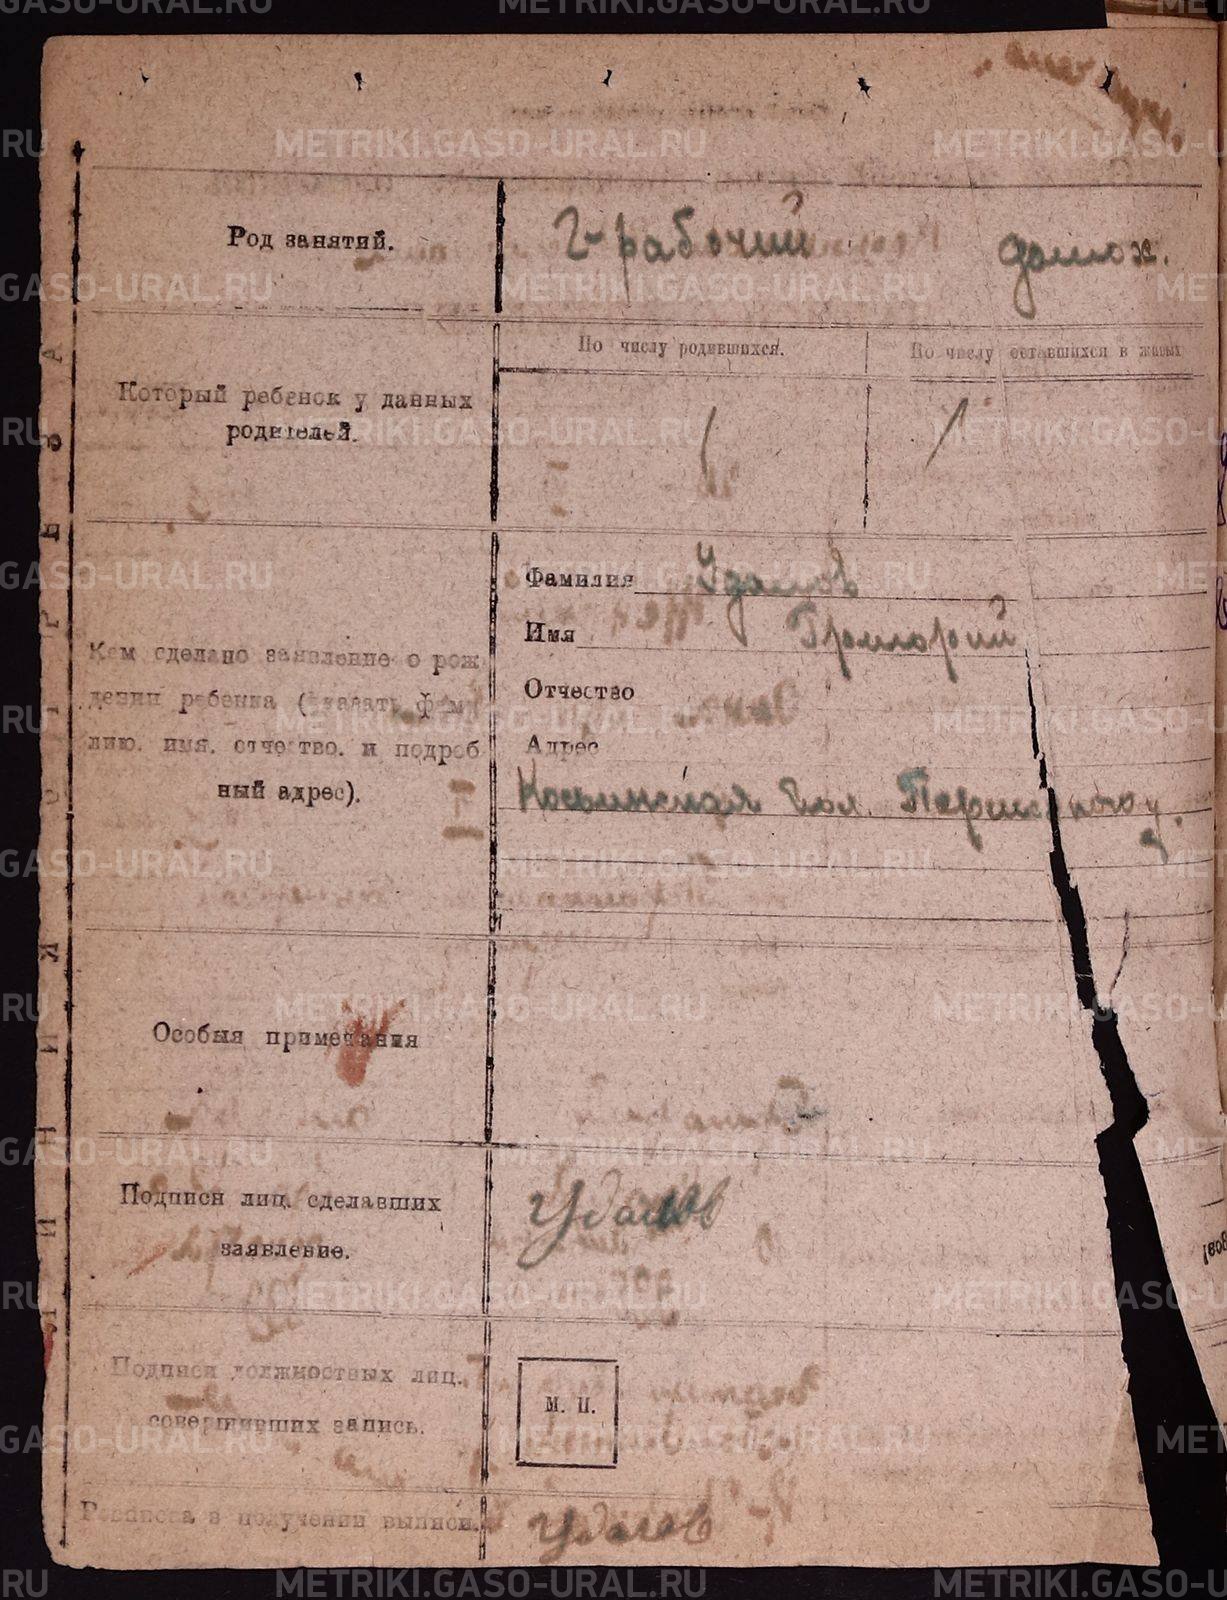 Род занятий.
2-рабочий домох.
По числу родившихся. По числу оставшихся в живых
Который ребенок у данных
родителей.
1 1
Фамилия Удалов
Имя Григорий
Отчество
Адрес
Кем сделано заявление о рож
дении ребенка (указать фами
лию, имя, отчество, и подроб
ный адрес).
Косьинская вол.
Особыя примечания
Подписи лиц. сделавших
заявление.
Удалов
Подписи должностных лиц.
совершивших запись.
М. П.
Расписка в получении выписи.
Удалов
METRIKI.GASO-URAL.RU